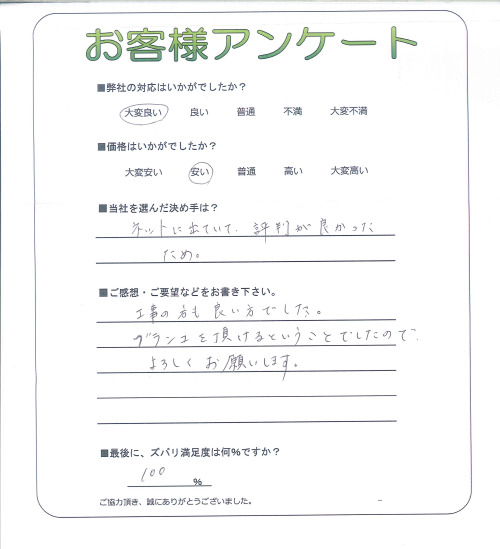 お客様アンケート
■弊社の対応はいかがでしたか？
大変良い 良い 普通 不満 大変不満
■価格はいかがでしたか？
大変安い 安い 普通 高い 大変高い
■当社を選んだ決め手は？
ネットに出ていて、評判が良かった
ため。
■ご感想・ご要望などをお書き下さい。
工事の方も良い方でした。
を頂けるということでしたので、
よろしくお願いします。
■最後に、ズバリ満足度は何％ですか？
100 ％
ご協力頂き、誠にありがとうございました。